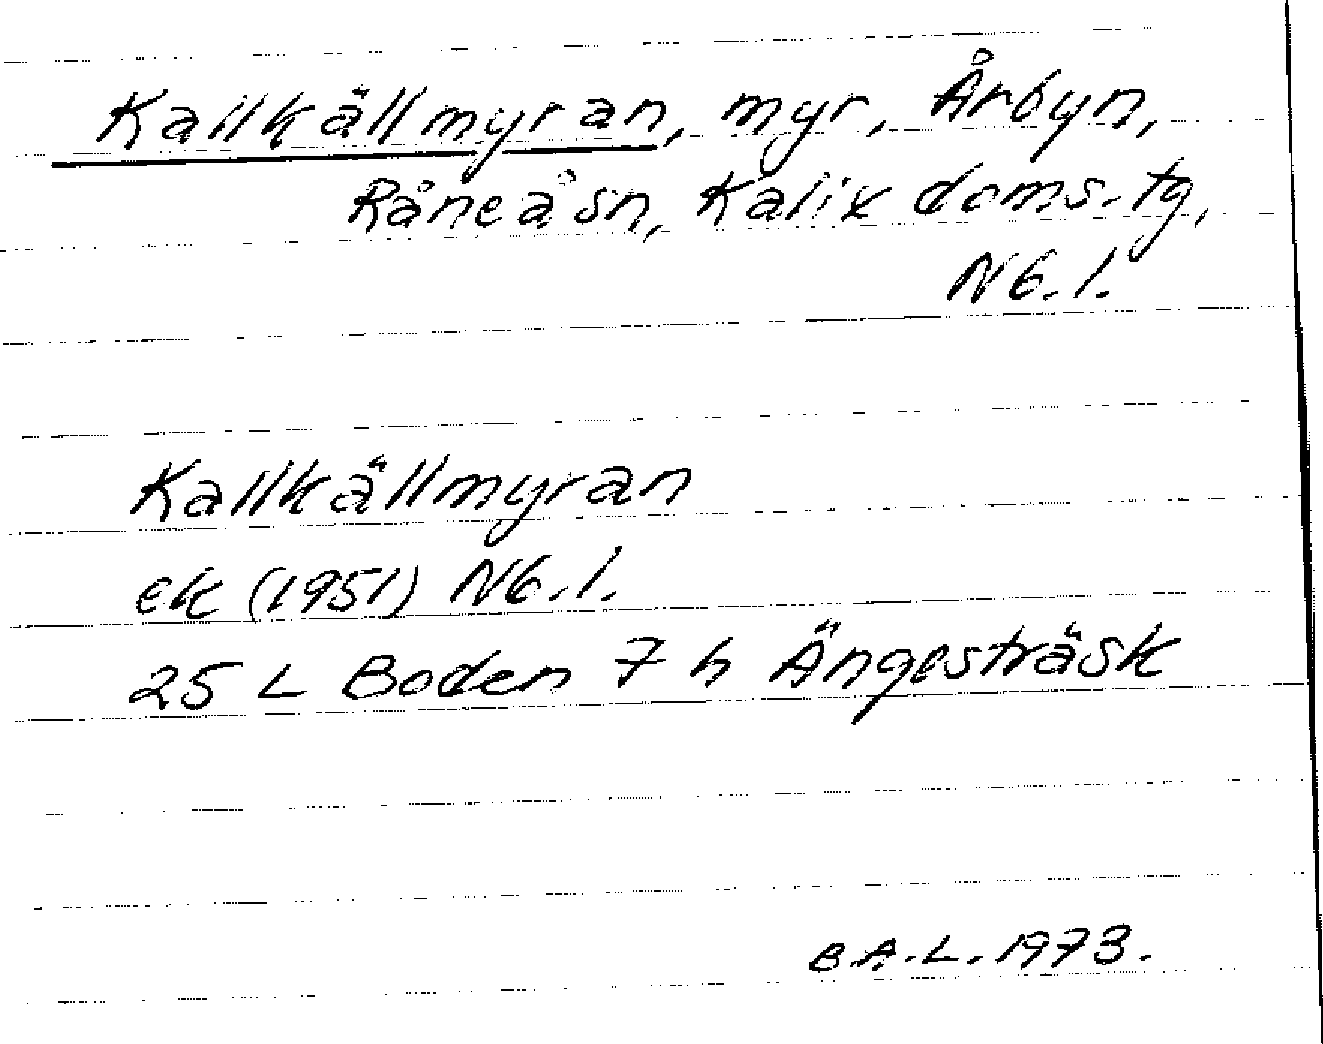 Kallkällmyran, myr, Årbyn,
Råneå sn, Kalix doms.tg,
Nb.l.
Kallkällmyran
ek (1951) Nb.l.
25 L Boden 7 h Ängesträsk
B.A.L. 1973.